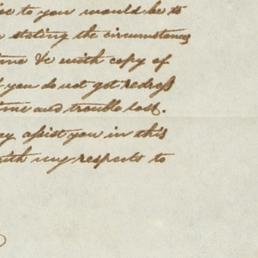 to you would be to
stating the circumstances
time &c with copy of
you do not get redress
time and trouble lost.
may assist you in this
with my respects to